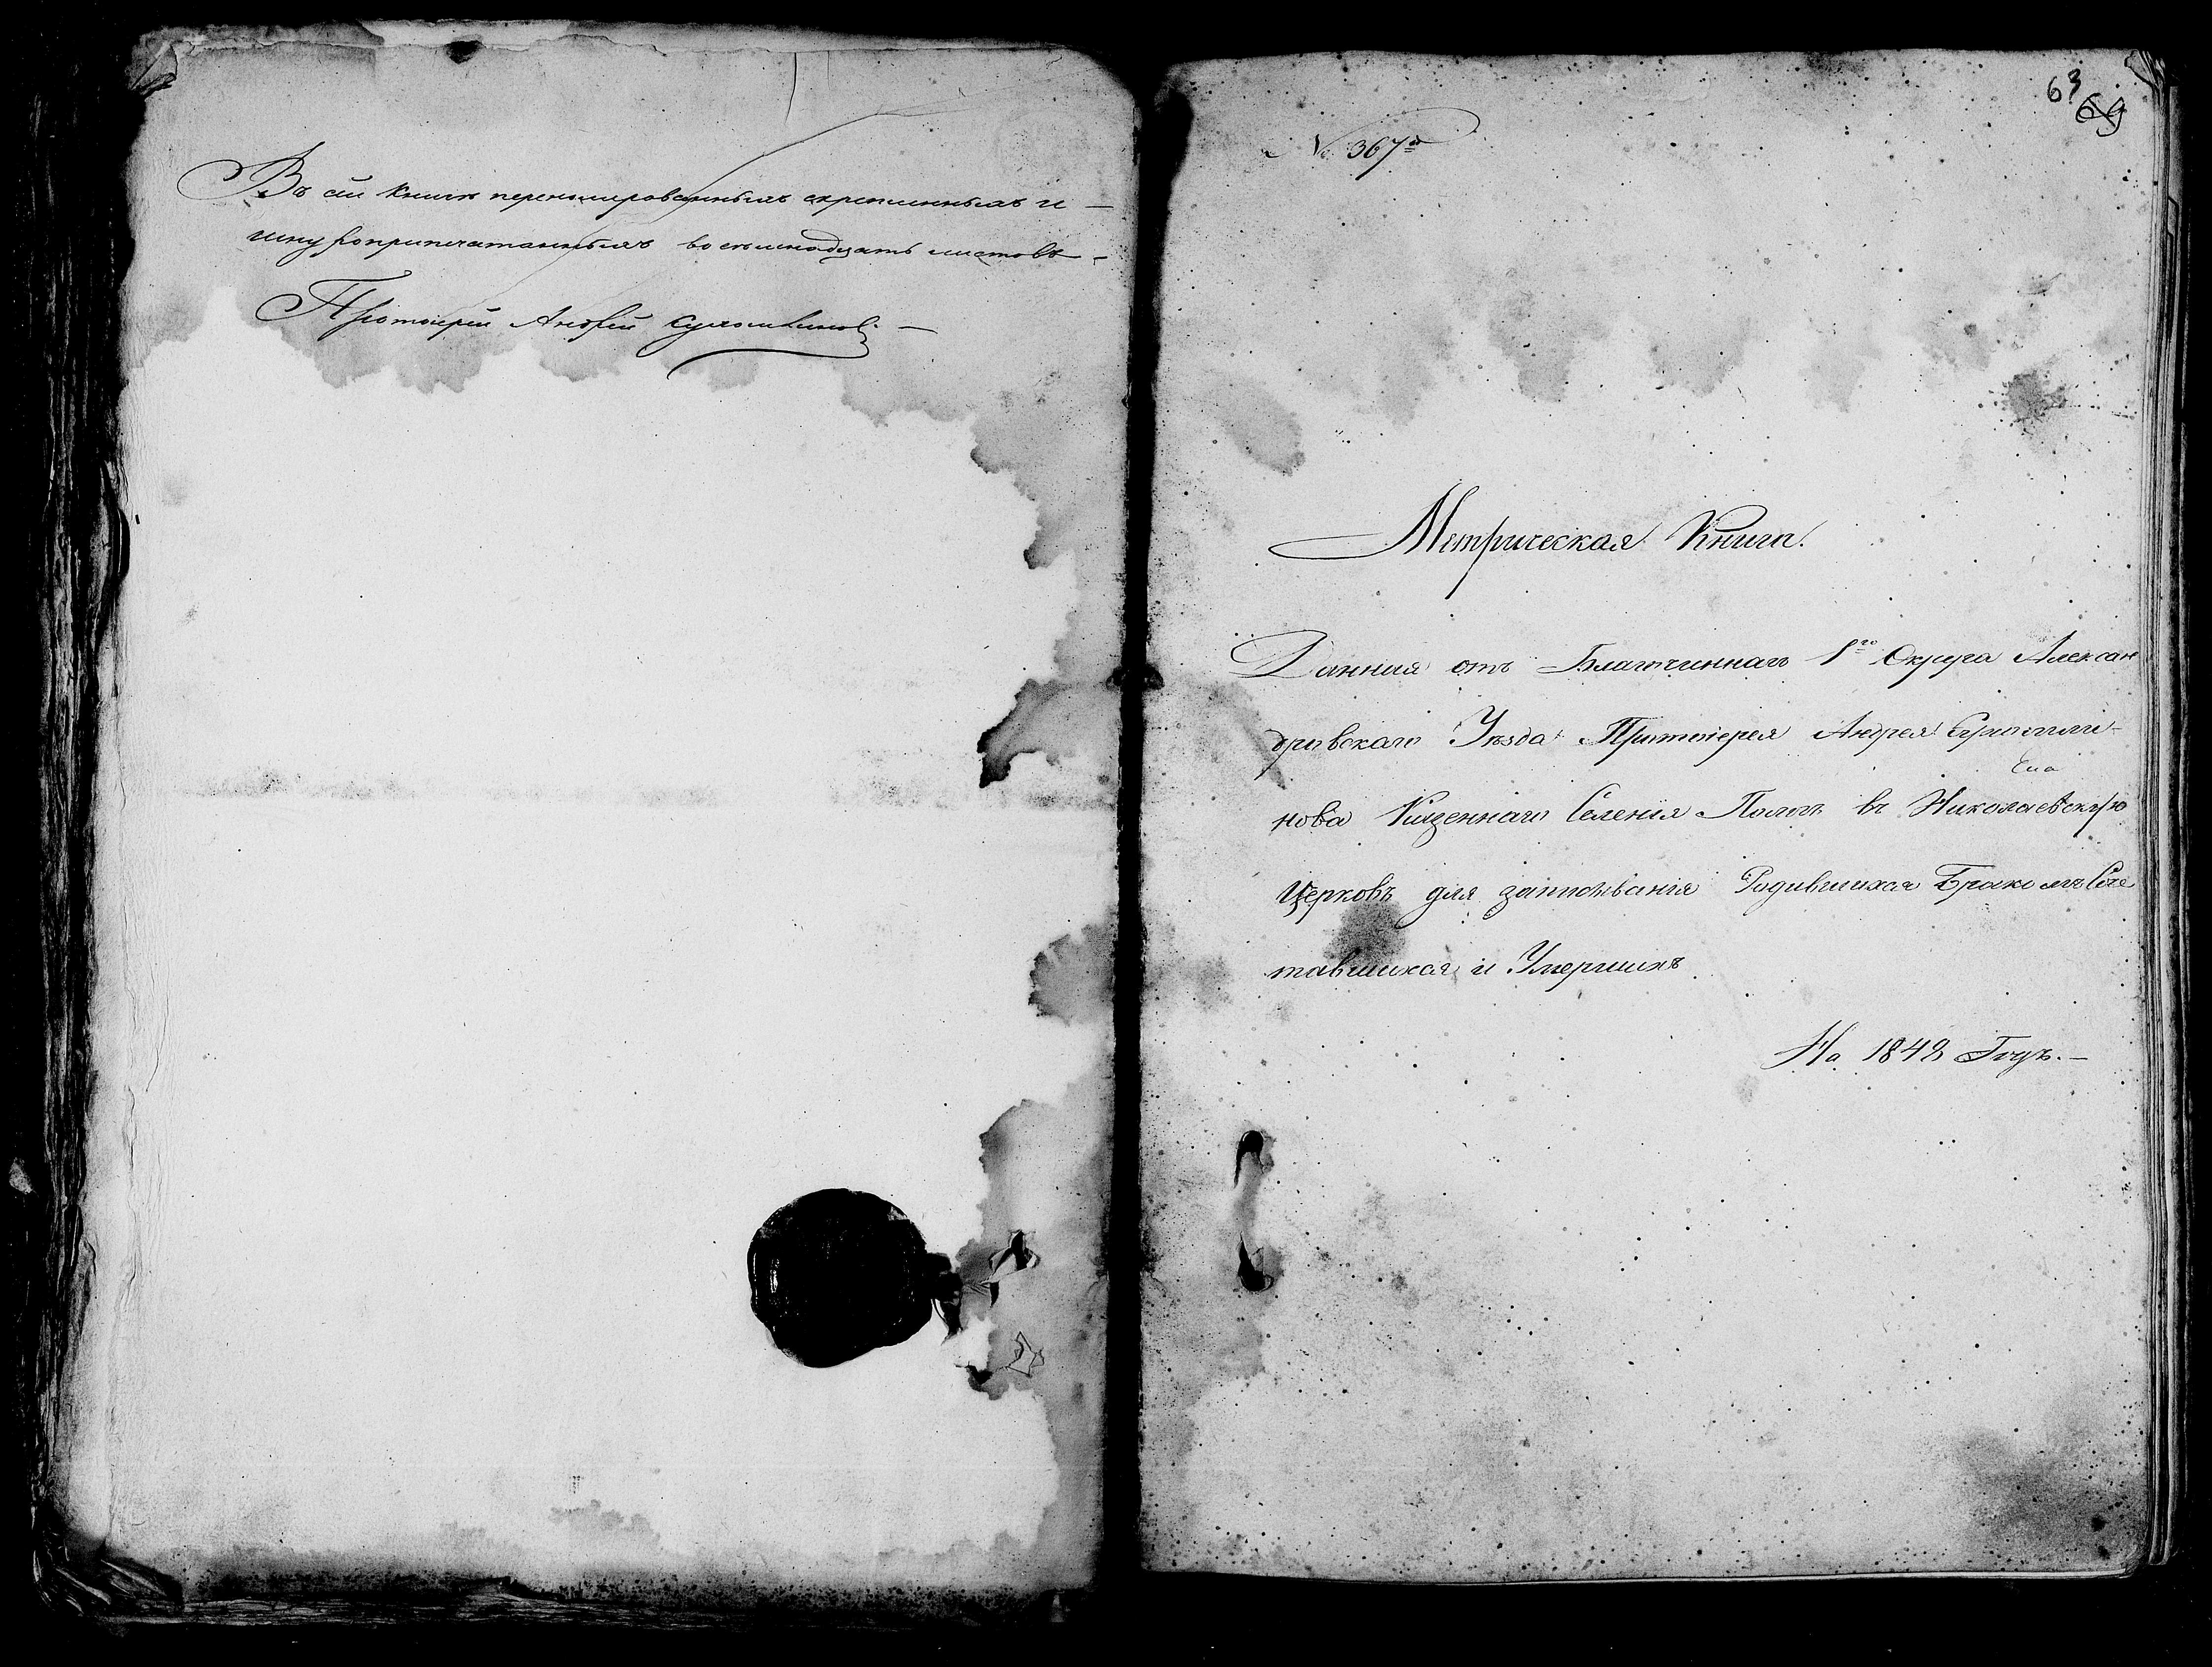 Въ сей Книгѣ перенумерованныхъ скрепленныхъ и —
шнуроприпечатанныхъ восемнадцать листовъ —
Протоіерей Андрей Сухомлиновъ. —
63
69
№ 367й
Метрическая Книга.
Данная отъ Благочиннаго 1го Округа Алексан
дровскаго Уѣзда Протоіерея Андрея Сухомли-
нова Казеннаго Селенія Пологъ въ Николаевскую
Церковь для записыванія Родившихся Бракомъ Соче
тавшихся и Умершихъ
На 1848 Годъ. —